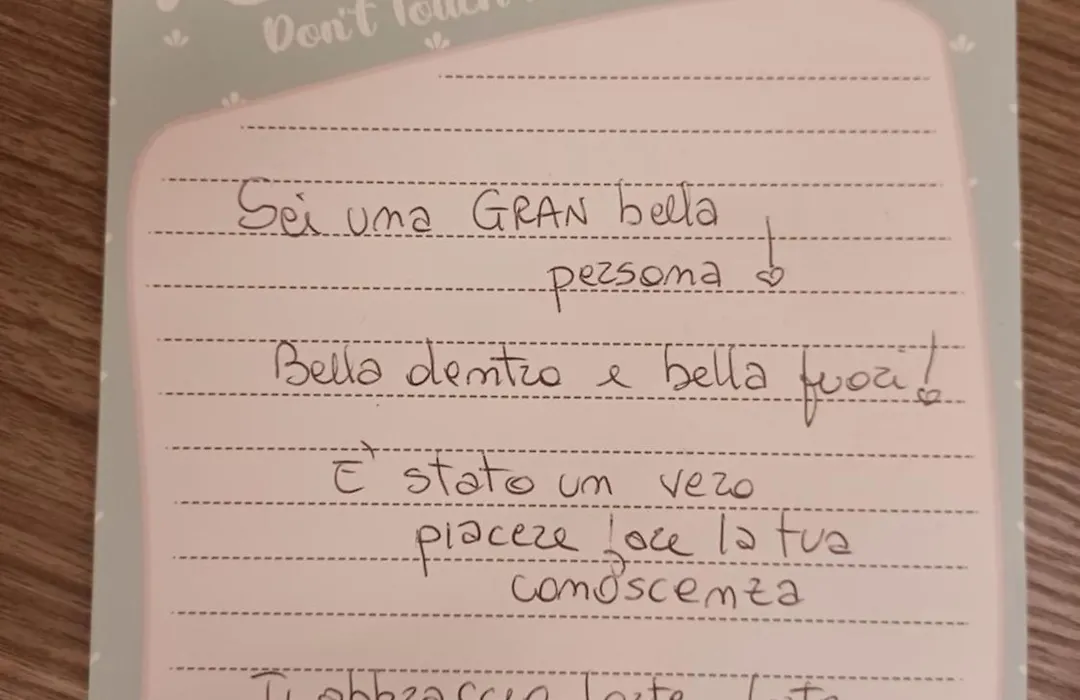 Don't Touch
Sei una GRAN bella
persona !
Bella dentro e bella fuori!
E' stato un vero
piacere fare la tua
conoscenza
Ti abbraccio forte,